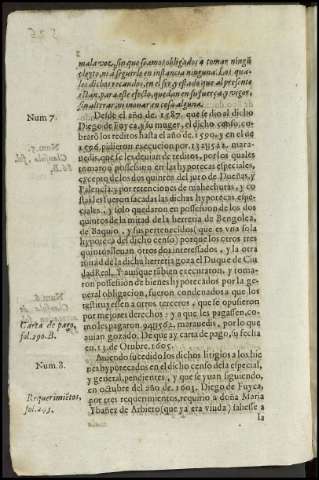 2
mala voz, sin que seamos obligados a tomar ningũ
pleyto, ni a seguirle en instancia ninguna. Las quales
dichos recaudos, en el ser, y estado que al presente
estàn, para este efecto, quedan en su fuerça, y vigor,
sin alterar, ni inouar en cosa alguna.
Num 7.
Desde el año de 1587. que se dio al dicho
Diego de Fuyca, y su muger, el dicho censo, cobraro
los reditos hasta el año de 1590. y en el de
1596. pidieron execucion por 131U522. marauedis,
que se les deuian de reditos, por los quales
tomaron possession en las hypotecas especiales,
excepto de los dos quintos del juro de Dueñas, y
Palencia; y por retenciones de mahechurias, y costas
les fueron sacadas las dichas hypotecas especiales,
y solo quedaron en possession de los dos
quintos de la mitad de la herreria de Bengolea,
de Baquio, y sus pertenecidos (que es vna sola
hypoteca del dicho censo) porque los otros tres
quintos lleuan otros dos interessados, y la otra
mitad de la dicha herreria goza el Duque de Ciudad
Real. Y aunque tãbien executaron, y tomaron
possession de bienes hypotecados por la general
obligacion, fueron condenados a que los
restituyessen a otros terceros, que se opusieron
por mejores derechos: y a que les pagassen, como
les pagaron 94U562. marauedis, por lo que
auian gozado. De que ay carta de pago, su fecha
en 13. de Octubre. 1605.
Carta de pago,
fol. 290. B.
Num. 8.
Auiendo sucedido los dichos litigios a los bienes
hypotecados en el dicho censo de la especial,
y general, pendientes, y que se yuan siguiendo,
en octubre del año de 1603. Diego de Fuyca,
por tres requerimientos, requirio a doña Maria
Ybañez de Arbieto (que ya era viuda) saliesse a
Requerimiẽtos,
fol. 293.
la